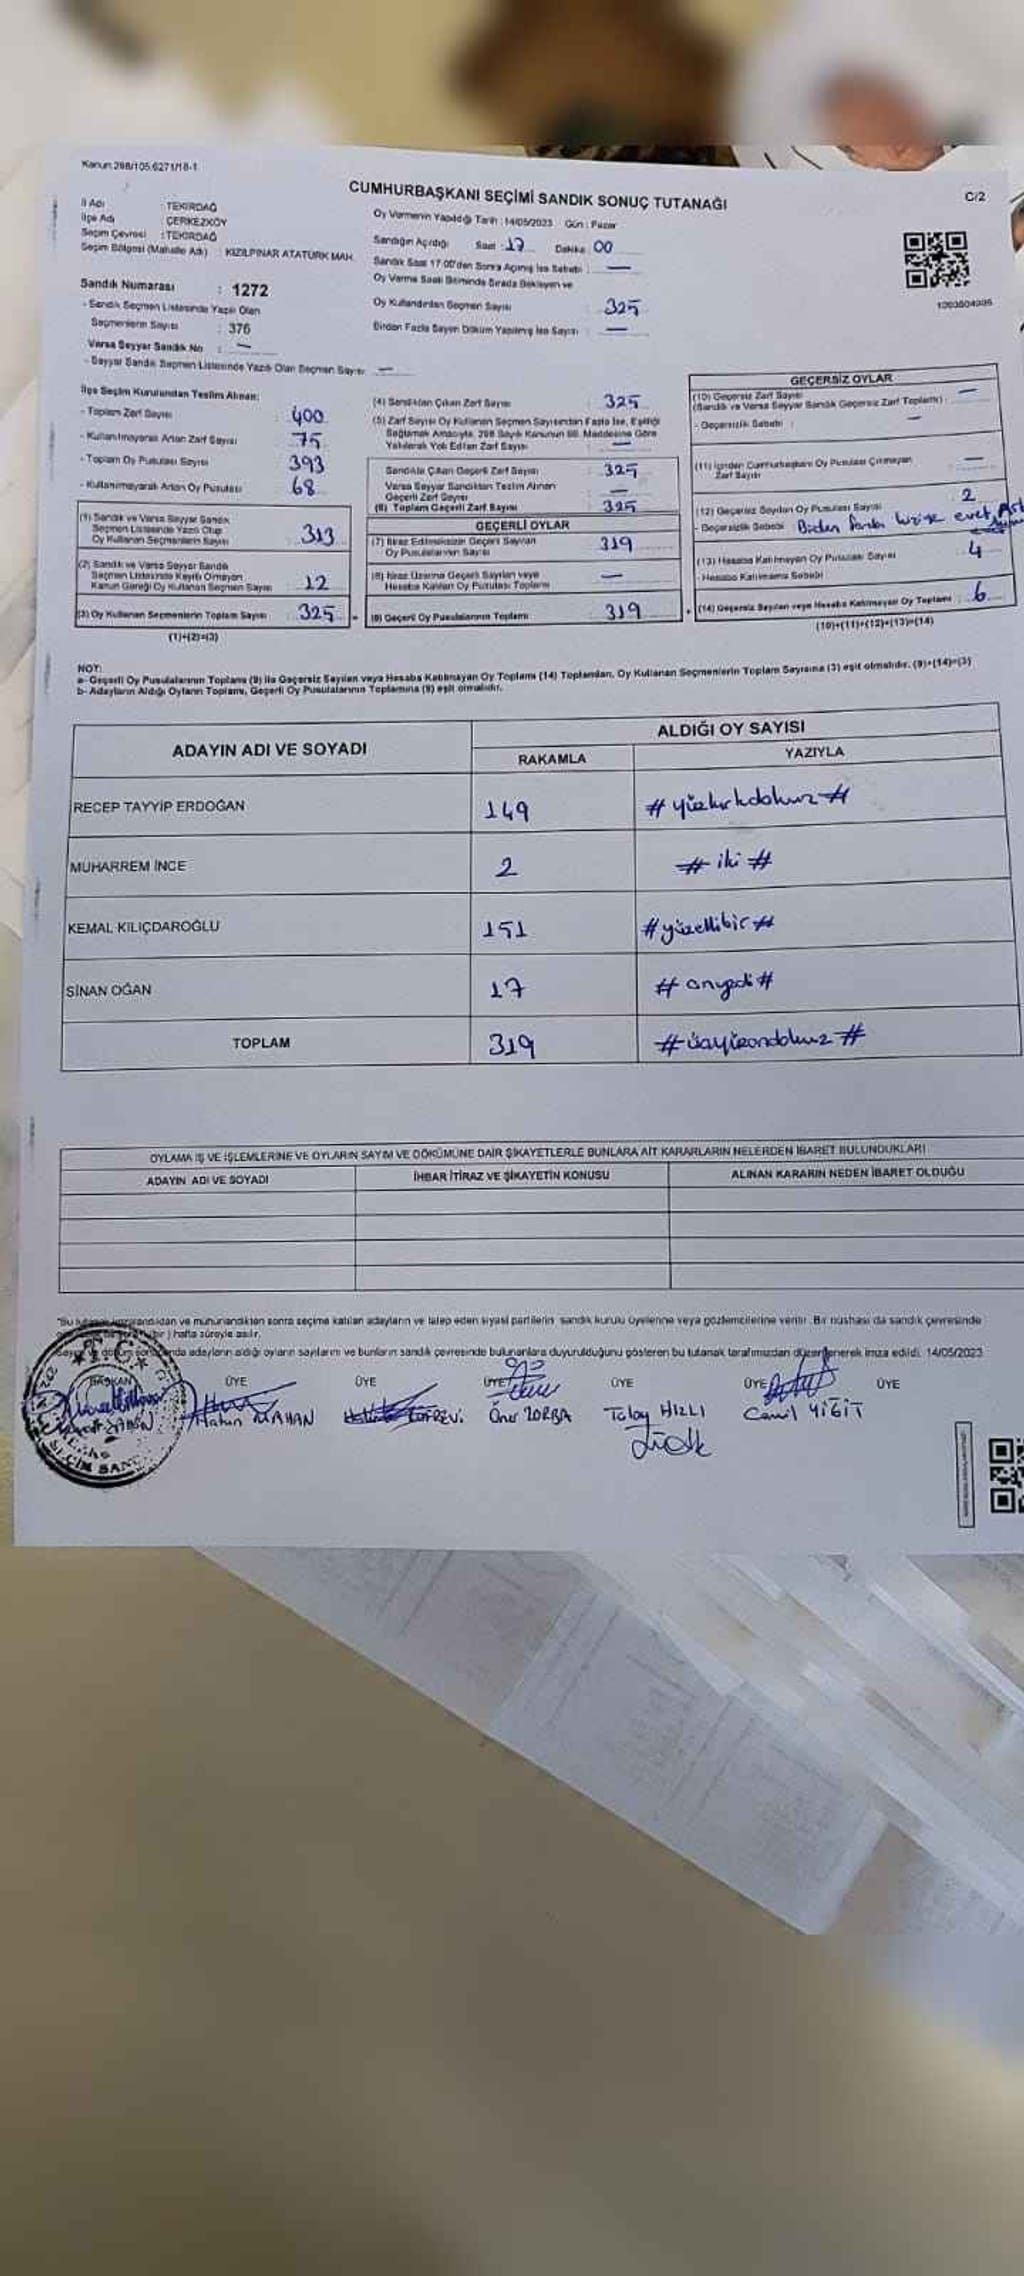 Kanun:298/105.6271/18-1
CUMHURBAŞKANI SEÇİMİ SANDIK SONUÇ TUTANAĞI
C/2
İl Adı : TEKİRDAĞ
İlçe Adı : ÇERKEZKÖY
Seçim Çevresi : TEKİRDAĞ
Seçim Bölgesi (Mahalle Adı) : KIZILPINAR ATATÜRK MAH.
Sandık Numarası : 1272
- Sandık Seçmen Listesinde Yazılı Olan
Seçmenlerin Sayısı : 376
Varsa Seyyar Sandık No : —
- Seyyar Sandık Seçmen Listesinde Yazılı Olan Seçmen Sayısı —
Oy Vermenin Yapıldığı Tarih : 14/05/2023 Gün : Pazar
Sandığın Açıldığı Saat : 17 Dakika 00
Sandık Saat 17:00'den Sonra Açılmış İse Sebebi : —
Oy Verme Saati Bitiminde Sırada Bekleyen ve
Oy Kullandırılan Seçmen Sayısı : 325
Birden Fazla Sayım Döküm Yapılmış İse Sayısı : —
İlçe Seçim Kurulundan Teslim Alınan;
- Toplam Zarf Sayısı : 400
- Kullanılmayarak Artan Zarf Sayısı : 75
- Toplam Oy Pusulası Sayısı : 393
- Kullanılmayarak Artan Oy Pusulası : 68
(1) Sandık ve Varsa Seyyar Sandık
Seçmen Listesinde Yazılı Olup
Oy Kullanan Seçmenlerin Sayısı : 313
(2) Sandık ve Varsa Seyyar Sandık
Seçmen Listesinde Kayıtlı Olmayan
Kanun Gereği Oy Kullanan Seçmen Sayısı : 12
(3) Oy Kullanan Seçmenlerin Toplam Sayısı : 325
(1)+(2)=(3)
(4) Sandıktan Çıkan Zarf Sayısı : 325
(5) Zarf Sayısı Oy Kullanan Seçmen Sayısından Fazla İse, Eşitliği
Sağlamak Amacıyla, 298 Sayılı Kanunun 98. Maddesine Göre
Yakılarak Yok Edilen Zarf Sayısı : —
Sandıkta Çıkan Geçerli Zarf Sayısı : 325
Varsa Seyyar Sandıktan Teslim Alınan
Geçerli Zarf Sayısı : —
(6) Toplam Geçerli Zarf Sayısı : 325
GEÇERLİ OYLAR
(7) İtiraz Edilmeksizin Geçerli Sayılan
Oy Pusulalarının Sayısı : 319
(8) İtiraz Üzerine Geçerli Sayılan veya
Hesaba Katılan Oy Pusulası Toplamı : —
(9) Geçerli Oy Pusulalarının Toplamı : 319
GEÇERSİZ OYLAR
(10) Geçersiz Zarf Sayısı —
(Sandık ve Varsa Seyyar Sandık Geçersiz Zarf Toplamı) :
- Geçersizlik Sebebi : —
(11) İçinden Cumhurbaşkanı Oy Pusulası Çıkmayan
Zarf Sayısı —
(12) Geçersiz Sayılan Oy Pusulası Sayısı : 2
- Geçersizlik Sebebi :
(13) Hesaba Katılmayan Oy Pusulası Sayısı : 4
- Hesaba Katılmama Sebebi :
(14) Geçersiz Sayılan veya Hesaba Katılmayan Oy Toplamı : 6
(10)+(11)+(12)+(13)=(14)
1003604995
NOT:
a- Geçerli Oy Pusulalarının Toplamı (9) ile Geçersiz Sayılan veya Hesaba Katılmayan Oy Toplamı (14) Toplamları, Oy Kullanan Seçmenlerin Toplam Sayısına (3) eşit olmalıdır. (9)+(14)=(3)
b- Adayların Aldığı Oyların Toplamı, Geçerli Oy Pusulalarının Toplamına (9) eşit olmalıdır.
ADAYIN ADI VE SOYADI
ALDIĞI OY SAYISI
RAKAMLA YAZIYLA
RECEP TAYYİP ERDOĞAN 149 # yüzkırkdokuz #
MUHARREM İNCE 2 # iki #
KEMAL KILIÇDAROĞLU 151 # yüzellibir #
SİNAN OĞAN 17 # onyedi #
TOPLAM 319 # üçyüzondokuz #
OYLAMA İŞ VE İŞLEMLERİNE VE OYLARIN SAYIM VE DÖKÜMÜNE DAİR ŞİKAYETLERLE BUNLARA AİT KARARLARIN NELERDEN İBARET BULUNDUKLARI
ADAYIN ADI VE SOYADI İHBAR İTİRAZ VE ŞİKAYETİN KONUSU ALINAN KARARIN NEDEN İBARET OLDUĞU
imzalandıktan ve mühürlendikten sonra seçime katılan adayların ve talep eden siyasi partilerin sandık kurulu üyelerine veya gözlemcilerine verilir. Bir nüshası da sandık çevresinde
bir ) hafta süreyle asılır.
sonunda adayların aldığı oyların sayılarını ve bunların sandık çevresinde bulunanlara duyurulduğunu gösteren bu tutanak tarafımızdan düzenlenerek imza edildi. 14/05/2023
BAŞKAN ÜYE ÜYE ÜYE ÜYE ÜYE ÜYE
MAHAN Öner ZORBA Tolay HIZLI Camil YİĞİT